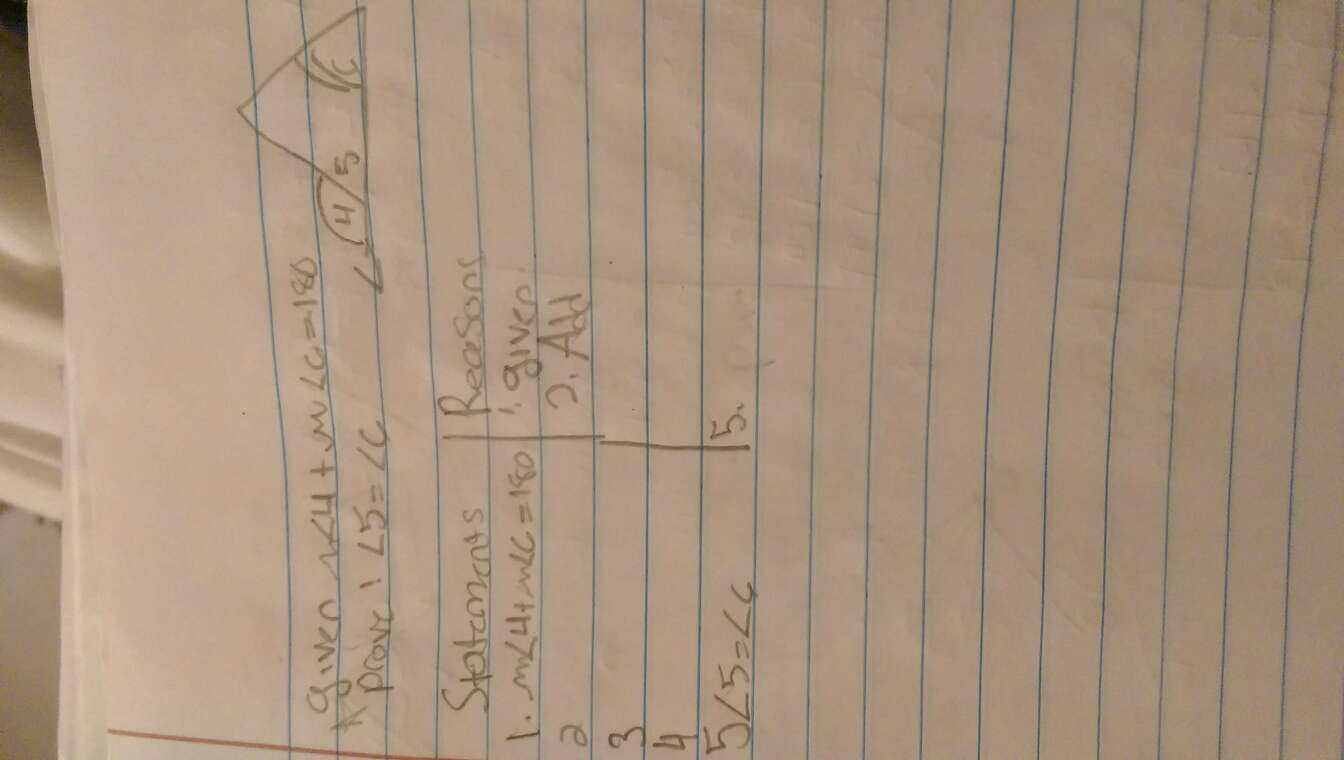 given m∠4 + m∠6 = 180
Prove: ∠5 = ∠6
4 5 6
Statements Reasons
1. m∠4 + m∠6 = 180 1. given
2 2. Add
3
4
5 ∠5 = ∠6 5.